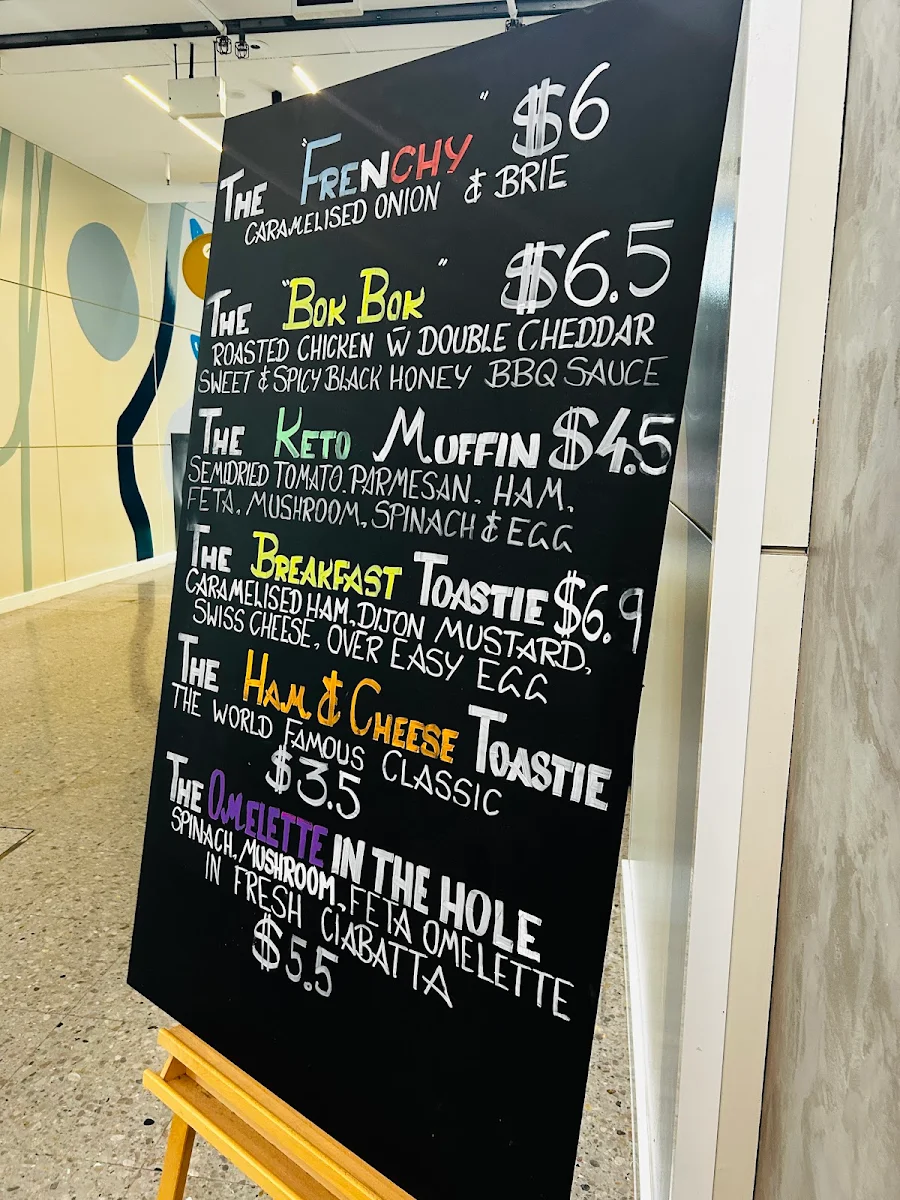 The "Frenchy" " $6
CARAMELISED ONION & BRIE
The "Bok Bok" $6.5
ROASTED CHICKEN W̄ DOUBLE CHEDDAR
SWEET & SPICY BLACK HONEY BBQ SAUCE
The Keto Muffin $4.5
SEMIDRIED TOMATO. PARMESAN, HAM,
FETA, MUSHROOM, SPINACH & EGG
The Breakfast Toastie $6.9
CARAMELISED HAM, DIJON MUSTARD,
SWISS CHEESE, OVER EASY EGG
The Ham & Cheese Toastie
THE WORLD FAMOUS CLASSIC
$3.5
The Omelette IN THE HOLE
SPINACH, MUSHROOM, FETA OMELETTE
IN FRESH CIABATTA
$5.5